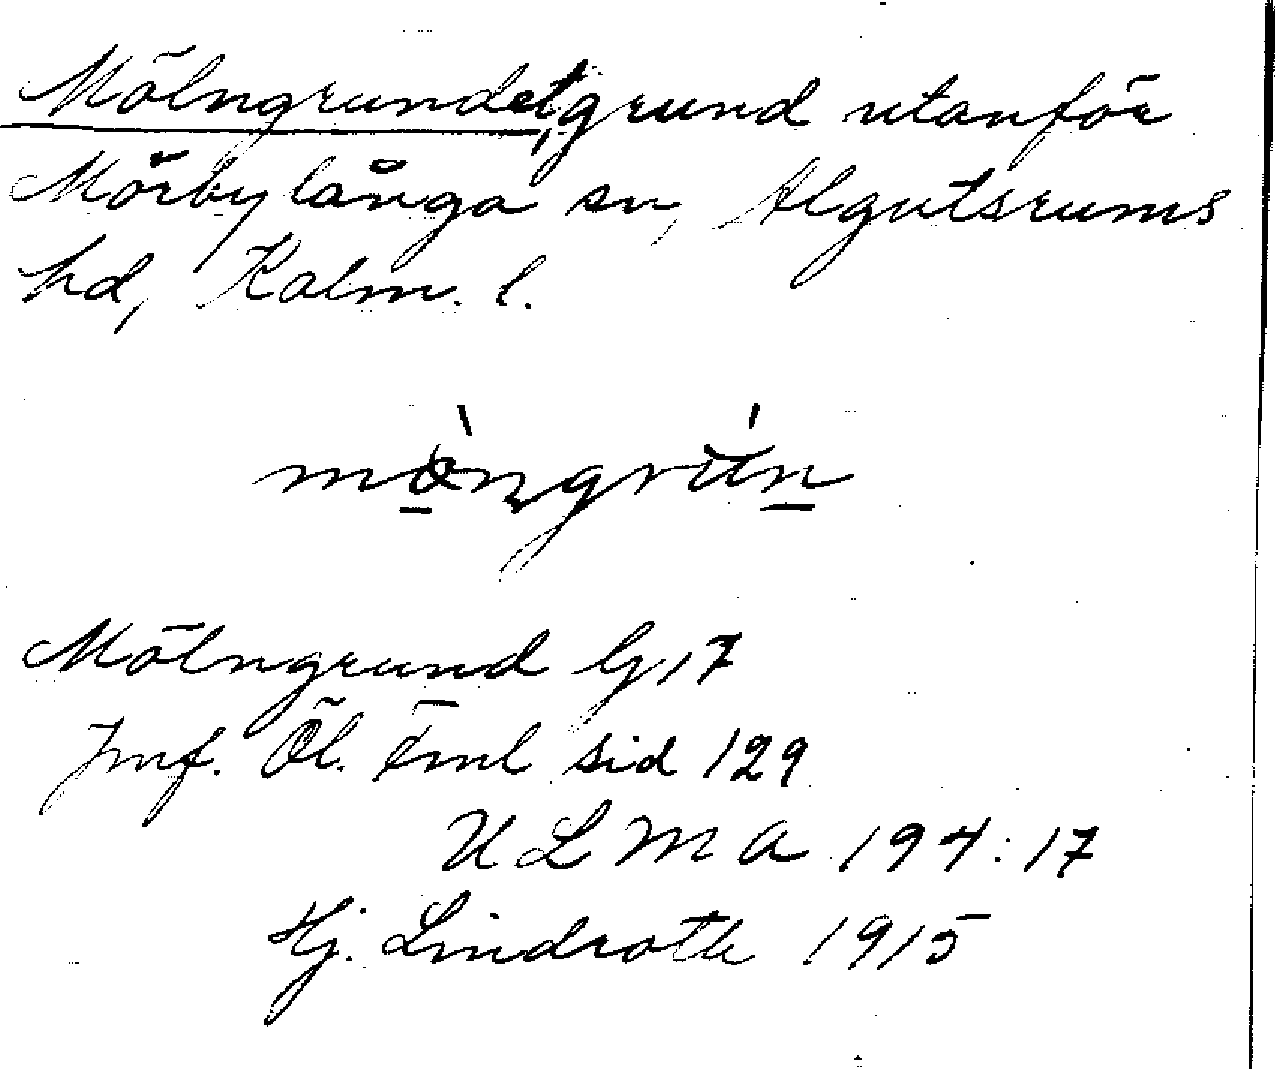 Mölngrundet, grund utanför
Mörbylånga sn, Algutsrums
hd, Kalm. l.
Mölngrund G 17
Jmf. Öl. Fml sid 129
ULMA 194:17
Hj. Lindroth 1915